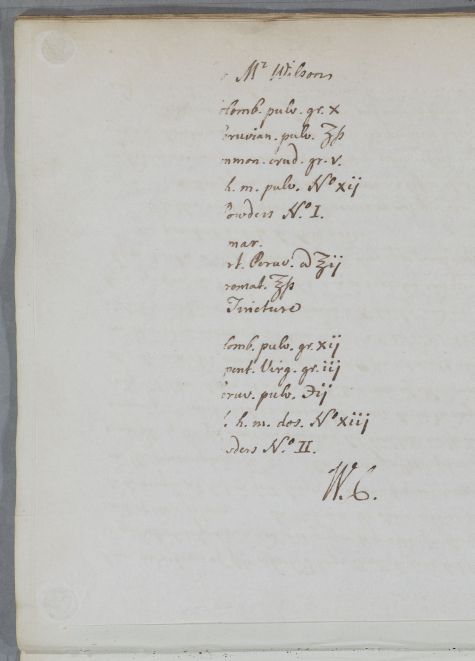 Mr Wilson
lomb. pulv. gr. x
eruvian. pulv. ʒß
mmon. crud. gr. v.
h. m. pulv. No xij
owders No. I.
mar.
rt. Peruv. ad ℥ij
romat. ʒß
Tincture
lomb. pulv. gr. xij
pent. Virg. gr. iij
eruv. pulv. ℈ij
h. m. dos. No xiij
wders No. II.
W. C.